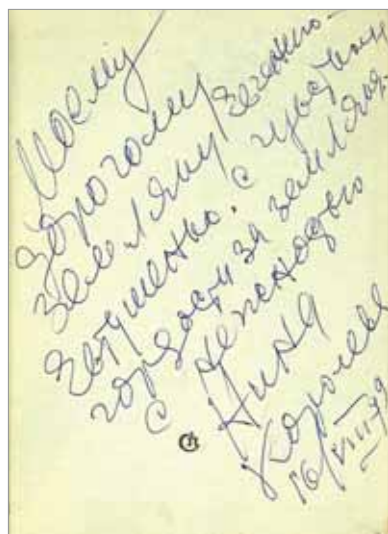 Моему
дорогому
земляку Евгению
Евтушенко. С чувством
гордости за земляка,
с нежностью
Нина
Королева
16/VIII 79